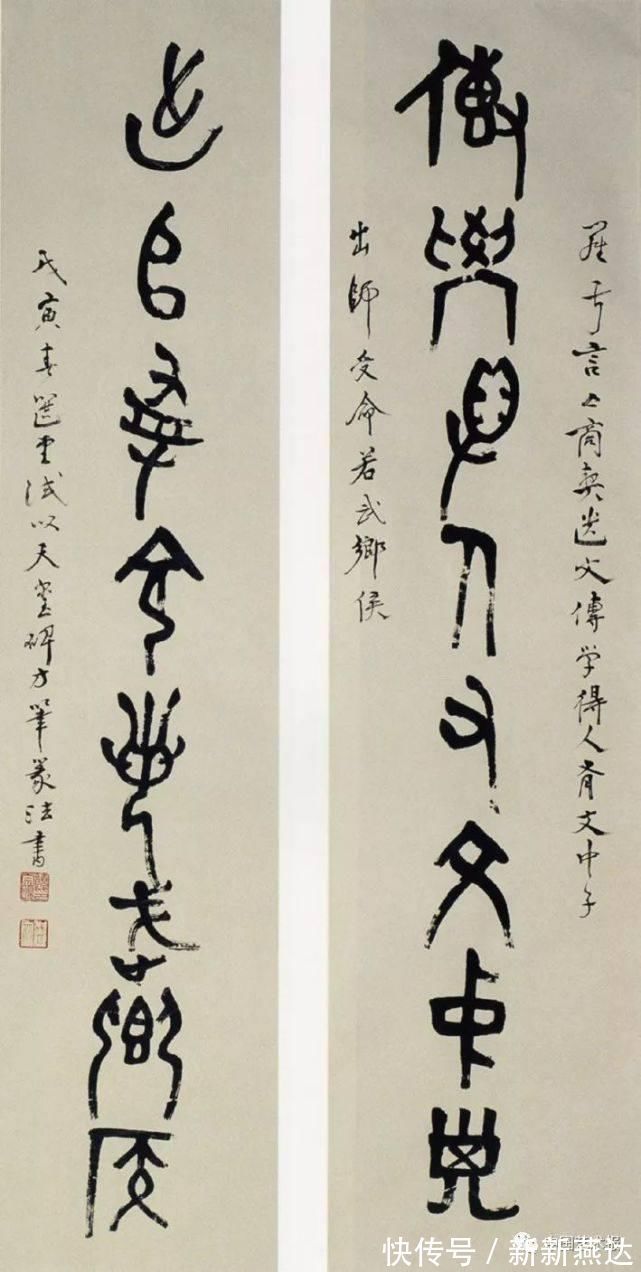 言亼商契遺文傳學得人有文中子
傳學得人有文中子
出師受命若武鄉侯
出師受命若武鄉侯
戊寅春選堂試以天璽碑方筆篆法書
中国艺术报
快传号 / 新新燕达